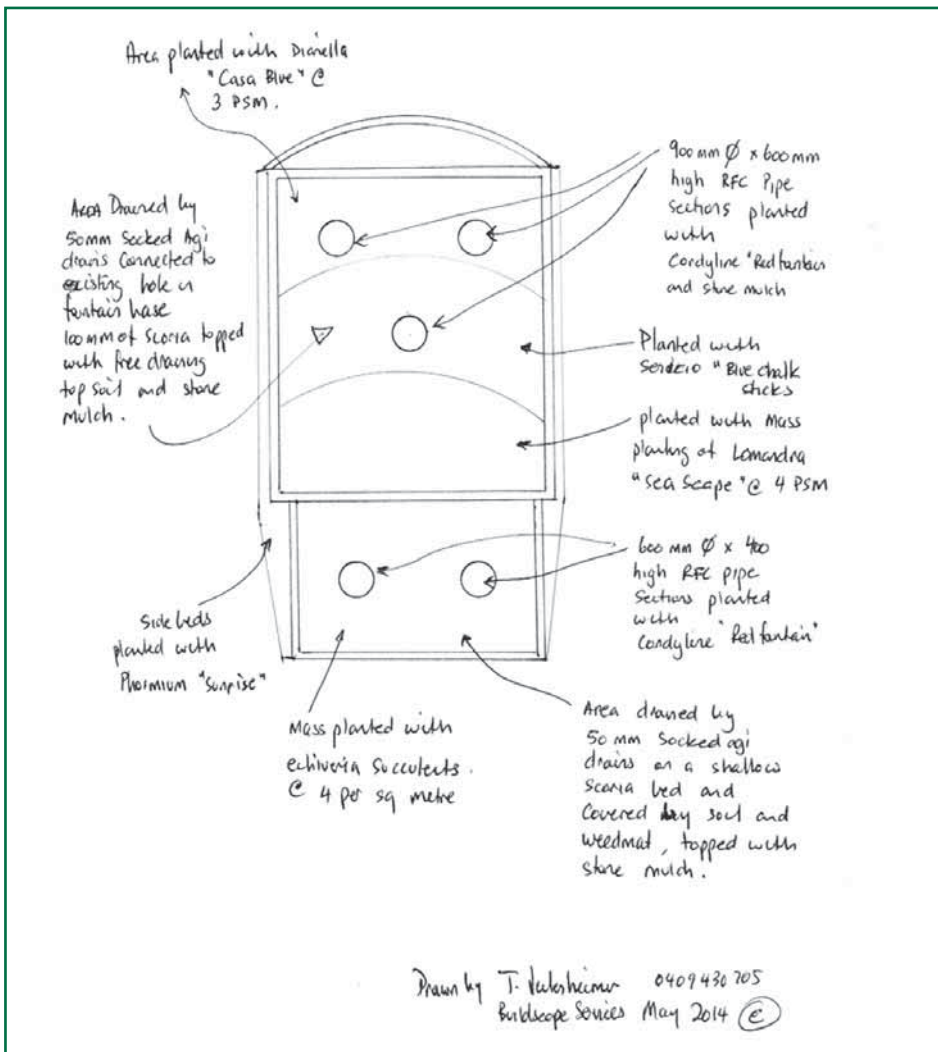 Area planted with Dianella
"Casa Blue" @
3 PSM.
900mm Ø x 600mm
high RFC Pipe
Sections planted
with
Cordyline "Red fantain
and stone mulch
Area Drained by
50mm Socked Agi
drains Connected to
existing hole in
fantain base
100mm of Scoria topped
with free draining
top soil and stone
mulch.
Planted with
"Blue chalk
sticks
planted with Mass
planting of Lomandra
"Sea Scape" @ 4 PSM
600 mm Ø x 400
high RFC pipe
Sections planted
with
Cordyline "Red fantain"
Side beds
planted with
Phormium "Sunrise"
Mass planted with
echiveria succulents.
@ 4 per sq metre
Area drained by
50 mm Socked agi
drains on a shallow
Scoria bed and
Covered by soil and
weedmat, topped with
stone mulch.
Drawn by T. 0409430705
Buildscape Services May 2014 ©